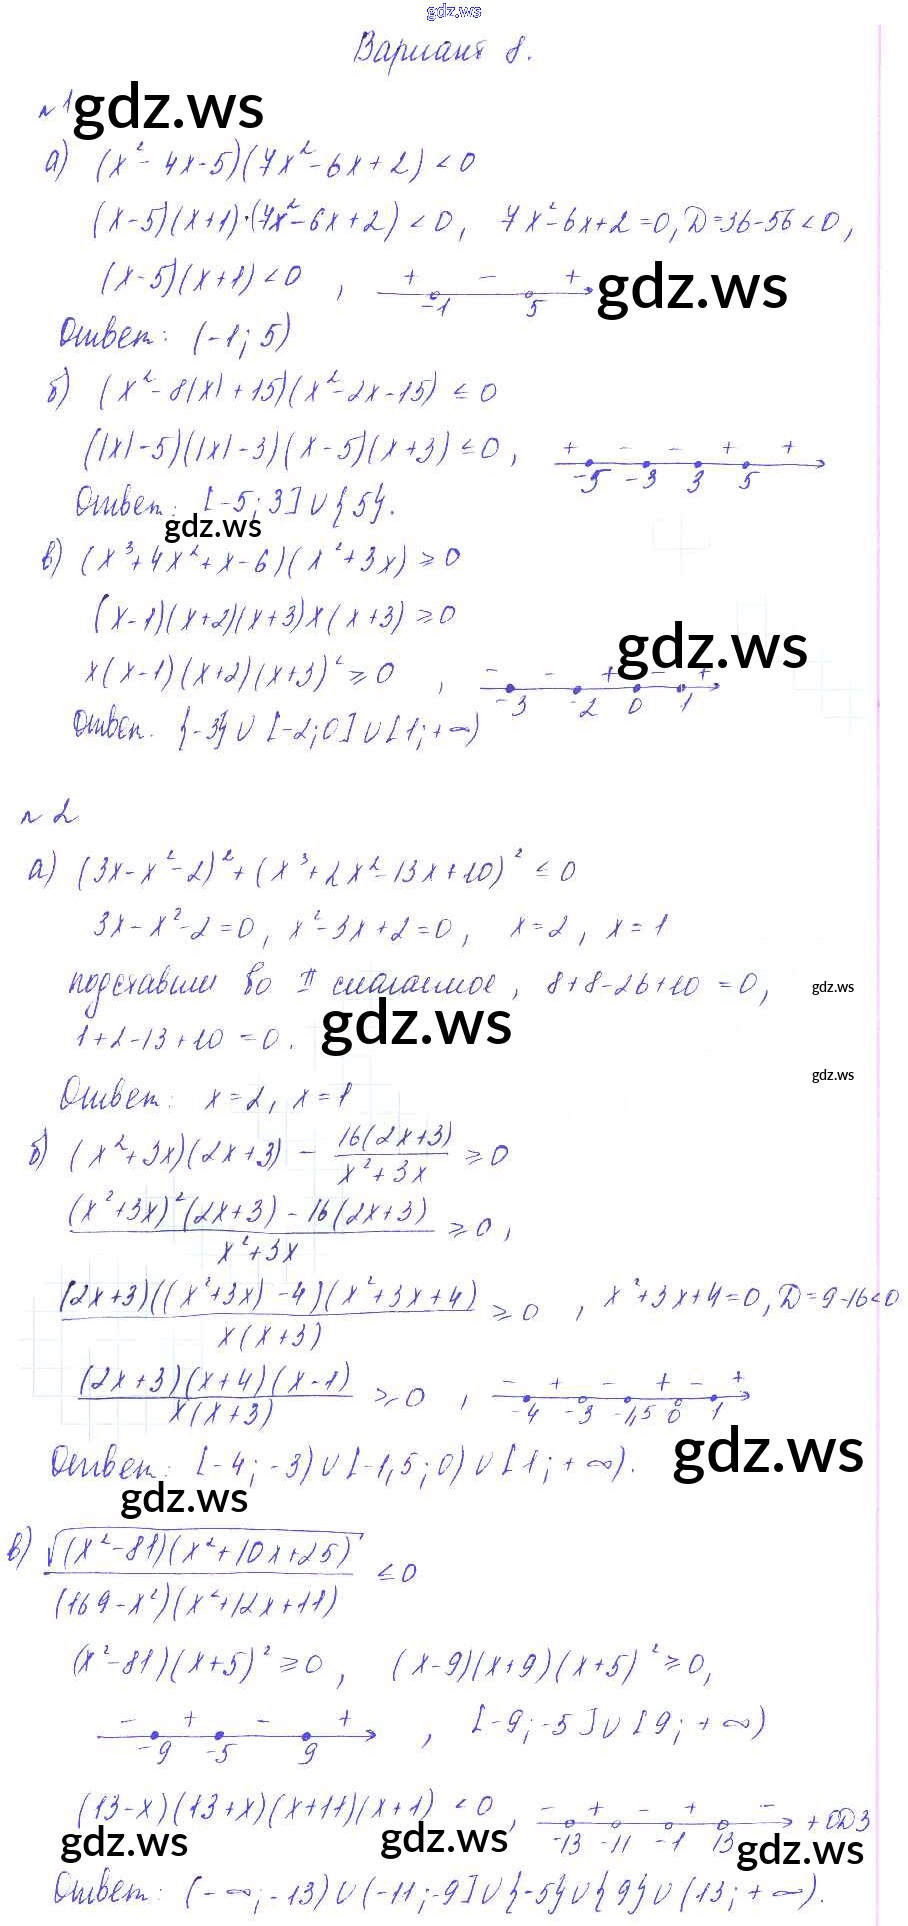 gdz.ws
Вариант 8.
№1 gdz.ws
а) (x² - 4x - 5)(7x² - 6x + 2) < 0
(x-5)(x+1)·(7x² - 6x + 2) < 0, 7x² - 6x + 2 = 0, D = 36 - 56 < 0,
(x-5)(x+1) < 0 , + - + gdz.ws
-1 5
Ответ: (-1; 5)
б) (x² - 8|x| + 15)(x² - 2x - 15) ≤ 0
(|x| - 5)(|x| - 3)(x - 5)(x + 3) ≤ 0, + - - + +
-5 -3 3 5
Ответ: [-5; 3] ∪ {5}.
gdz.ws
в) (x³ + 4x² + x - 6)(x² + 3x) ≥ 0
(x-1)(x+2)(x+3)x(x+3) ≥ 0
gdz.ws
x(x-1)(x+2)(x+3)² ≥ 0 , - - + - +
-3 -2 0 1
Ответ. {-3} ∪ [-2; 0] ∪ [1; +∞)
№2
а) (3x - x² - 2)² + (x³ + 2x² - 13x + 10)² ≤ 0
3x - x² - 2 = 0, x² - 3x + 2 = 0, x = 2, x = 1
подставим во II слагаемое, 8 + 8 - 26 + 10 = 0, gdz.ws
gdz.ws
1 + 2 - 13 + 10 = 0.
gdz.ws
Ответ: x = 2, x = 1
б) (x² + 3x)(2x + 3) - 16(2x+3)/(x² + 3x) ≥ 0
((x² + 3x)²(2x+3) - 16(2x+3))/(x² + 3x) ≥ 0,
(2x+3)((x² + 3x) - 4)(x² + 3x + 4)/(x(x+3)) ≥ 0 , x² + 3x + 4 = 0, D = 9 - 16 < 0
(2x+3)(x+4)(x-1)/(x(x+3)) ≥ 0 , - + - + - +
-4 -3 -1,5 0 1
gdz.ws
Ответ: [-4; -3) ∪ [-1,5; 0) ∪ [1; +∞).
gdz.ws
в) √((x² - 81)(x² + 10x + 25))/((169 - x²)(x² + 12x + 11)) ≤ 0
(x² - 81)(x+5)² ≥ 0, (x-9)(x+9)(x+5)² ≥ 0,
- + - + , [-9; -5] ∪ [9; +∞)
-9 -5 9
(13-x)(13+x)(x+11)(x+1) < 0, - + - + - + ОДЗ
-13 -11 -1 13
gdz.ws gdz.ws gdz.ws
Ответ: (-∞; -13) ∪ (-11; -9] ∪ {-5} ∪ {9} ∪ (13; +∞).